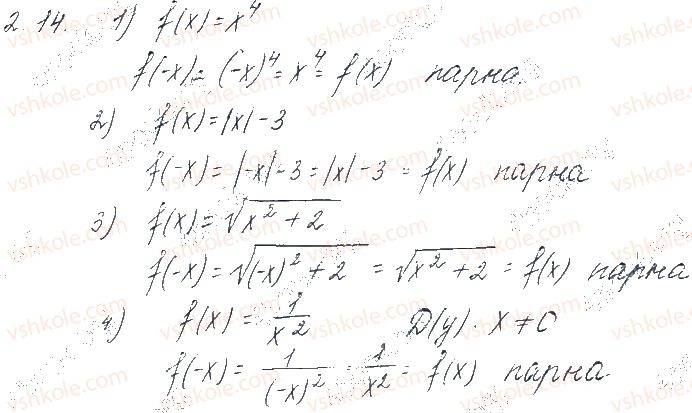 2.14. 1) f(x)=x⁴
f(-x)=(-x)⁴=x⁴=f(x) парна.
2) f(x)=|x|-3
f(-x)=|-x|-3=|x|-3=f(x) парна
3) f(x)=√(x²+2)
f(-x)=√((-x)²+2)=√(x²+2)=f(x) парна
4) f(x)=1/x² D(y). x≠0
f(-x)=1/(-x)²=1/x²=f(x) парна.